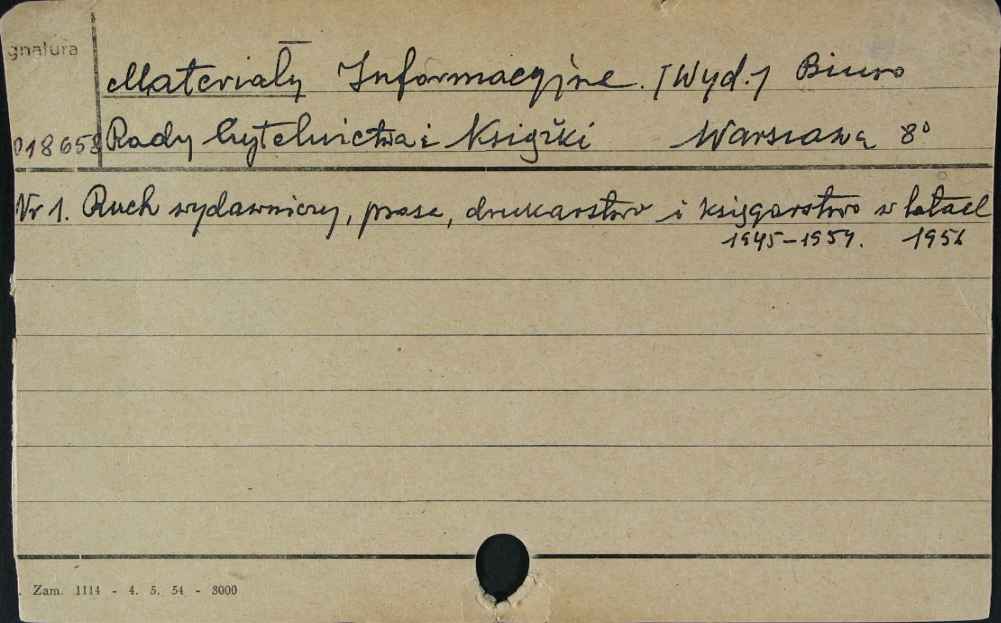 gnatura
Materiały Informacyjne. [Wyd.] Biuro
018658 Rady Czytelnictwa i Książki Warszawa 8°
Nr 1. Ruch wydawniczy, prasa, drukarstwo i księgarstwo w latach
1945-1954. 1956
. Zam. 1114 - 4. 5. 54 - 3000